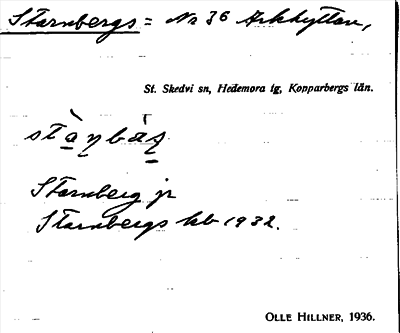 Starnbergs = No 36 Arkhyttan,
St. Skedvi sn, Hedemora tg, Kopparbergs län.
Starnberg jr
Starnbergs kb 1932.
OLLE HILLNER, 1936.